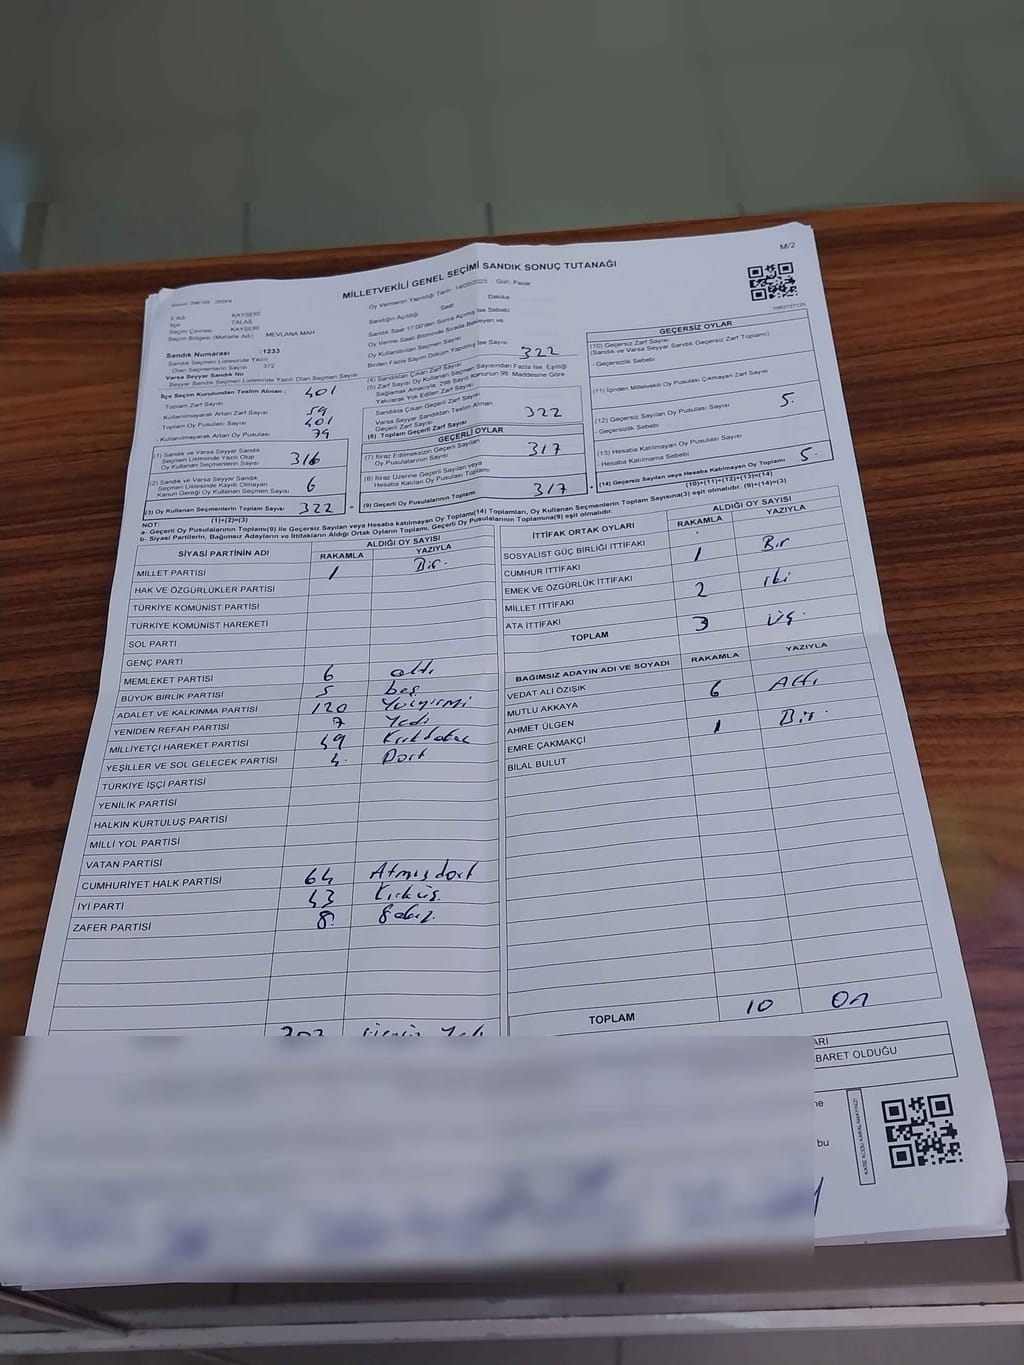 M/2
MİLLETVEKİLİ GENEL SEÇİMİ SANDIK SONUÇ TUTANAĞI
İl Adı KAYSERİ
İlçe TALAS
Seçim Çevresi KAYSERİ
Seçim Bölgesi (Mahalle Adı) MEVLANA MAH
Sandık Numarası :1233
Sandık Seçmen Listesinde Yazılı
Olan Seçmenlerin Sayısı 372
Varsa Seyyar Sandık No
Seyyar Sandık Seçmen Listesinde Yazılı Olan Seçmen Sayısı
İlçe Seçim Kurulundan Teslim Alınan ;
Toplam Zarf Sayısı 401
Kullanılmayarak Artan Zarf Sayısı
Toplam Oy Pusulası Sayısı 401
Kullanılmayarak Artan Oy Pusulası 79
(1) Sandık ve Varsa Seyyar Sandık
Seçmen Listesinde Yazılı Olup
Oy Kullanan Seçmenlerin Sayısı 316
(2) Sandık ve Varsa Seyyar Sandık
Seçmen Listesinde Kayıtlı Olmayan
Kanun Gereği Oy Kullanan Seçmen Sayısı 6
(3) Oy Kullanan Seçmenlerin Toplam Sayısı 322
(1)+(2)=(3)
Oy Vermenin Yapıldığı Tarih 14/05/2023 Gün, Pazar
Sandığın Açıldığı Saat Dakika
Sandık Saat 17:00'den Sonra Açılmış İse Sebebi
Oy Verme Saati Bitiminde Sırada Bekleyen ve
Oy Kullandırılan Seçmen Sayısı
Birden Fazla Sayım Döküm Yapılmış İse Sayısı
(4) Sandıktan Çıkan Zarf Sayısı 322
(5) Zarf Sayısı Oy Kullanan Seçmen Sayısından Fazla İse, Eşitliği
Sağlamak Amacıyla, 298 Sayılı Kanunun 98. Maddesine Göre
Yakılarak Yok Edilen Zarf Sayısı
Sandıkta Çıkan Geçerli Zarf Sayısı
Varsa Seyyar Sandıktan Teslim Alınan
Geçerli Zarf Sayısı
(6) Toplam Geçerli Zarf Sayısı 322
GEÇERLİ OYLAR
(7) İtiraz Edilmeksizin Geçerli Sayılan
Oy Pusulalarının Sayısı 317
(8) İtiraz Üzerine Geçerli Sayılan veya
Hesaba Katılan Oy Pusulası Toplamı
(9) Geçerli Oy Pusulalarının Toplamı 317
GEÇERSİZ OYLAR
(10) Geçersiz Zarf Sayısı
(Sandık ve Varsa Seyyar Sandık Geçersiz Zarf Toplamı)
Geçersizlik Sebebi
(11) İçinden Milletvekili Oy Pusulası Çıkmayan Zarf Sayısı
(12) Geçersiz Sayılan Oy Pusulası Sayısı 5.
Geçersizlik Sebebi
(13) Hesaba Katılmayan Oy Pusulası Sayısı
Hesaba Katılmama Sebebi
(14) Geçersiz Sayılan veya Hesaba Katılmayan Oy Toplamı 5.
(10)+(11)+(12)+(13)=(14)
NOT:
a- Geçerli Oy Pusulalarının Toplamı(9) ile Geçersiz Sayılan veya Hesaba katılmayan Oy Toplamı(14) Toplamları, Oy Kullanan Seçmenlerin Toplam Sayısına(3) eşit olmalıdır. (9)+(14)=(3)
b- Siyasi Partilerin, Bağımsız Adayların ve İttifakların Aldığı Ortak Oyların Toplamı, Geçerli Oy Pusulalarının Toplamına(9) eşit olmalıdır.
SİYASİ PARTİNİN ADI ALDIĞI OY SAYISI
RAKAMLA YAZIYLA
MİLLET PARTİSİ 1 Bir.
HAK VE ÖZGÜRLÜKLER PARTİSİ
TÜRKİYE KOMÜNİST PARTİSİ
TÜRKİYE KOMÜNİST HAREKETİ
SOL PARTİ
GENÇ PARTİ
MEMLEKET PARTİSİ 6 altı
BÜYÜK BİRLİK PARTİSİ 5 beş
ADALET VE KALKINMA PARTİSİ 120 Yüzyirmi
YENİDEN REFAH PARTİSİ 7 Yedi
MİLLİYETÇİ HAREKET PARTİSİ 49 Kırkdokuz
YEŞİLLER VE SOL GELECEK PARTİSİ 4. Dört
TÜRKİYE İŞÇİ PARTİSİ
YENİLİK PARTİSİ
HALKIN KURTULUŞ PARTİSİ
MİLLİ YOL PARTİSİ
VATAN PARTİSİ
CUMHURİYET HALK PARTİSİ 64 Atmışdört
İYİ PARTİ 43 Kırküç.
ZAFER PARTİSİ 8. Sekiz.
İTTİFAK ORTAK OYLARI ALDIĞI OY SAYISI
RAKAMLA YAZIYLA
SOSYALİST GÜÇ BİRLİĞİ İTTİFAKI
CUMHUR İTTİFAKI 1 Bir
EMEK VE ÖZGÜRLÜK İTTİFAKI
MİLLET İTTİFAKI 2 iki
ATA İTTİFAKI
TOPLAM 3 üç.
BAĞIMSIZ ADAYIN ADI VE SOYADI RAKAMLA YAZIYLA
VEDAT ALİ ÖZIŞIK
MUTLU AKKAYA 6 Altı
AHMET ÜLGEN
EMRE ÇAKMAKÇİ 1 Bir.
BİLAL BULUT
TOPLAM 10 On
ARI
BARET OLDUĞU
ne
bu
KARE KODU KARALAMAYINIZ!